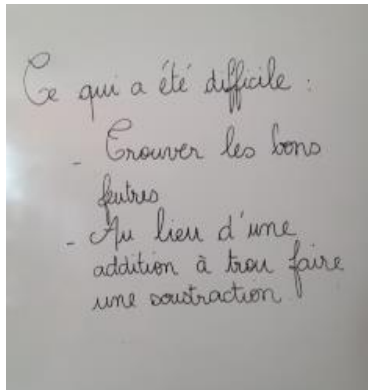 Ce qui a été difficile :
- Trouver les bons
feutres
- Au lieu d'une
addition à trou faire
une soustraction